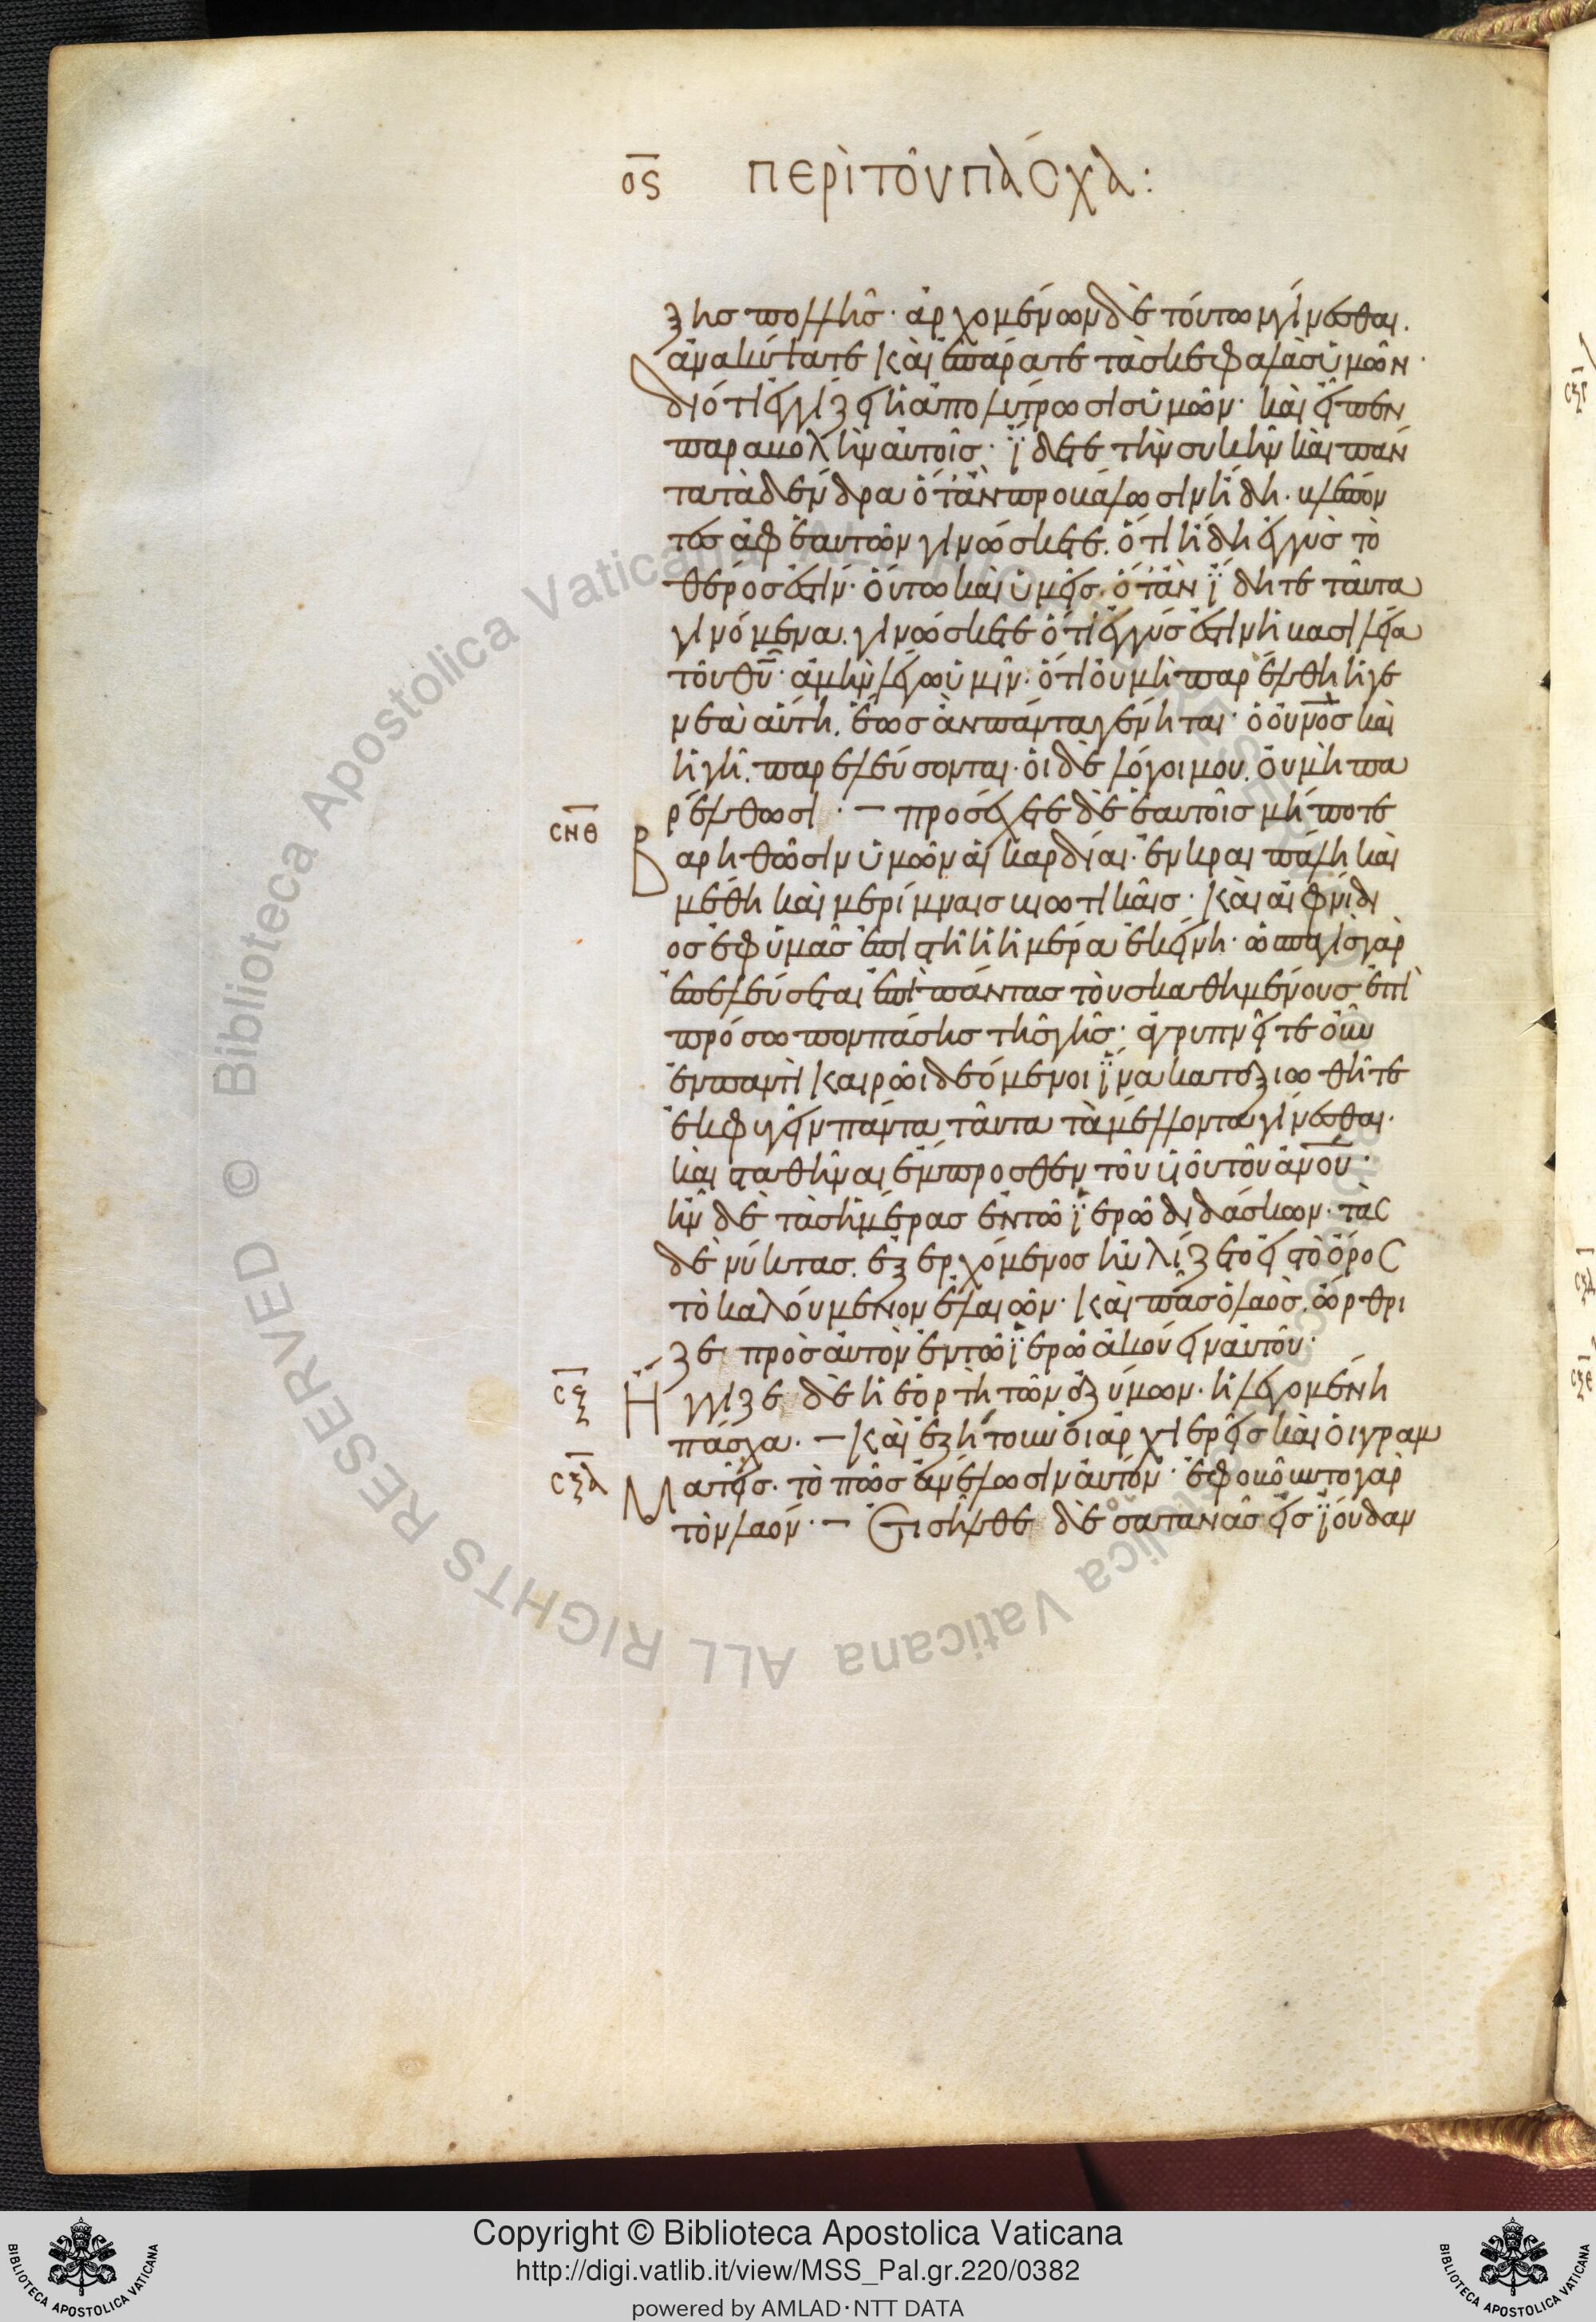 ος ΠΕΡῚ ΤΟΥ͂ ΠΆΣΧΑ:
ξησ πολλῆσ· ἀρχομένων δὲ τούτων γίνεσθαι.
ἀνακύψατε καὶ ἐπάρατε τὰσ κεφαλὰσ ὑμῶν·
διότι ἐγγίζει ἡ ἀπολύτρωσισ ὑμῶν· καὶ εἶπεν
παραβολὴν αὐτοῖσ· ἴ̈δετε τὴν συκῆν καὶ πάν
τα τὰ δένδρα ὅτὰν προβάλωσιν ἤδη· βλέπον
τεσ ἀφ ἑαυτῶν γινώσκετε. ὅτι ἤδη ἐγγὺσ τὸ
θέροσ ἐστίν· οὕτω καὶ ὑμεῖσ. ὅτὰν ἴ̈δητε ταῦτα
γινόμενα. γινώσκετε ὅτι ἐγγύσ ἐστιν ἡ βασιλεία
τοῦ θυ̅· ἀμὴν λέγω ὑμῖν· ὅτι οὐ μὴ παρέλθη ἡ γε
νεὰ αὕτη. ἕωσ ἂν πάντα γένηται· ὁ οὐνο̅σ καὶ
ἡ γῆ. παρελεύσονται· οἱ δὲ λόγοι μου. οὐ μὴ πα
ρέλθωσι· – προσέχετε δὲ ἑαυτοῖσ μή ποτε
ΣΝΘ Βαρηθῶσιν ὑμῶν αἱ καρδίαι· ἐν κραιπάλη καὶ
μέθη καὶ μερίμναισ βιωτικαῖσ· καὶ αἰφνίδι
οσ ἐφ ὑμᾶσ ἐπιστῆ ἡ ἡμέρα ἐκείνη· ὡσ παγὶσ γὰρ
ἐπελεύσεται ἐπὶ πάντασ τοὺσ καθημένουσ ἐπὶ
πρόσωπον πάσησ τῆσ γῆσ· ἀγρυπνεῖτε οὖν
ἐν παντὶ καιρῶι δεόμενοι ἵ̈να καταξιωθῆτε
ἐκφυγεῖν πάντα ταῦτα τὰ μέλλοντα γίνεσθαι·
καὶ σταθῆναι ἔμπροσθεν τοῦ υἱοῦ τοῦ ἀνο̅υ·
ἦν δὲ τὰσ ἡμέρασ ἐν τῶ ἱ̈ερῶ διδάσκων· τὰσ
δὲ νύκτασ. ἐξερχόμενοσ ηὐλίζετο εἰσ τὸ ὄροσ
τὸ καλούμενον ἐλαιῶν· καὶ πᾶσ ὁ λαὸσ. ὤρθρι
ζε πρὸσ αὐτὸν ἐν τῶ ἱ̈ερῶ ἀκούειν αὐτοῦ·
ΣΞ Ἤγγιζε δὲ ἡ ἑορτὴ τῶν ἀζύμων· ἡ λεγομένη
πάσχα. – καὶ ἐζήτουν οἱ ἀρχιερεῖσ καὶ οἱ γραμ
ΣΞΑ Ματεῖσ· τὸ πῶσ ἀνέλωσιν αὐτόν· ἐφοβοῦντο γὰρ
τὸν λαόν· – Εἰσῆλθε δὲ σατανᾶσ εἰσ ἰ̈ούδαν
ΣΞΓ
Copyright © Biblioteca Apostolica Vaticana
http://digi.vatlib.it/view/MSS_Pal.gr.220/0382
powered by AMLAD·NTT DATA
BIBLIOTECA APOSTOLICA VATICANA
BIBLIOTECA APOSTOLICA VATICANA
© Biblioteca Apostolica Vaticana ALL RIGHTS RESERVED